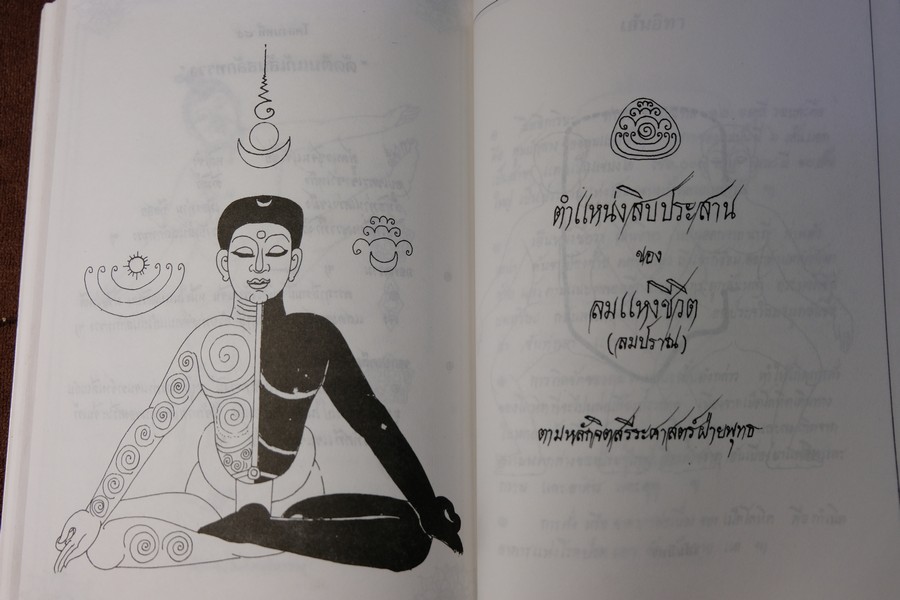 ตำแหน่งสิบประสาน
ของ
ลมแห่งชีวิต
(ลมปราณ)
ตามหลักจิตสรีระศาสตร์ฝ่ายพุทธ